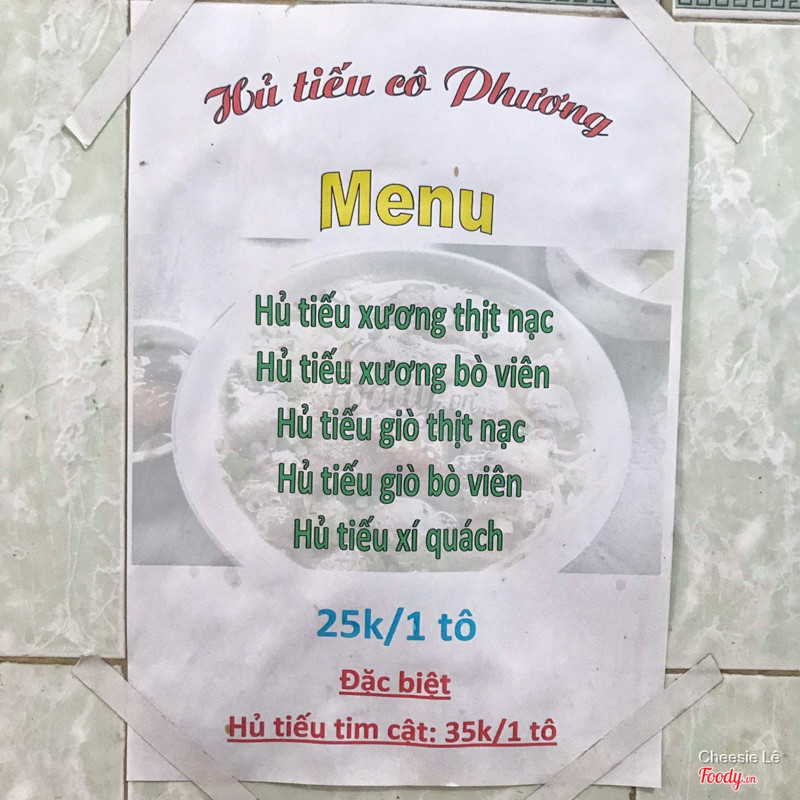 Hủ tiếu cô Phương
Menu
Hủ tiếu xương thịt nạc
Hủ tiếu xương bò viên
Hủ tiếu giò thịt nạc
Hủ tiếu giò bò viên
Hủ tiếu xí quách
25k/1 tô
Đặc biệt
Hủ tiếu tim cật: 35k/1 tô
Cheesie Lê
Foody.vn